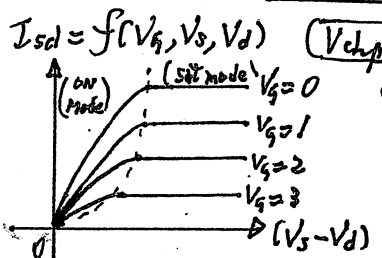 I_sd = f(V_G, V_S, V_d)
(ON Mode)
(Sat mode)
V_G = 0
V_G = 1
V_G = 2
V_G = 3
0
(V_S - V_d)